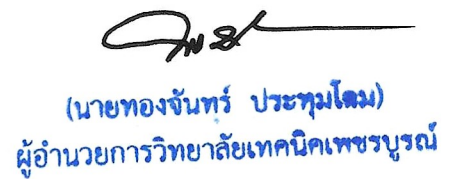 (นายทองจันทร์ ประทุมโฉม)
ผู้อำนวยการวิทยาลัยเทคนิคเพชรบูรณ์